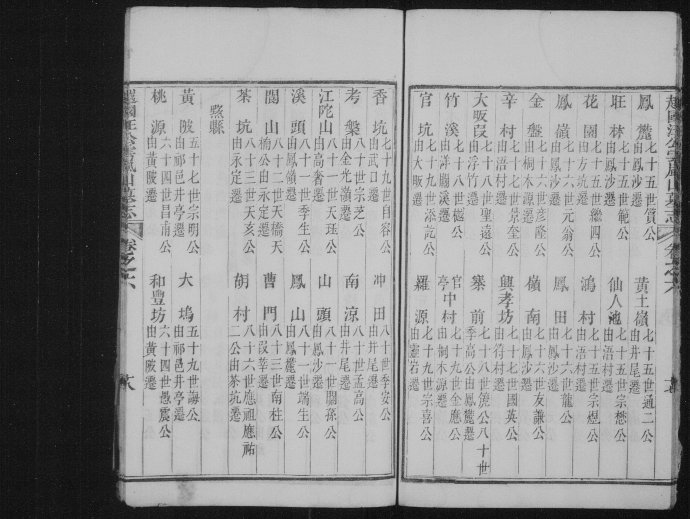 越國汪公雲嵐山墓志 卷之六
鳳麓 七十五世質公 由鳳沙遷 黃土嶺 七十五世通二公 由井尾遷
旺林 七十五世範公 由鳳沙遷 仙人 七十五世宗懋公 由浯村遷
花園 七十五世繼四公 由方坑遷 鴻村 七十五世宗煜公 由浯村遷
鳳嶺 七十六世元翁公 由鳳沙遷 鳳田 七十六世龍公 由鳳沙遷
金盤 七十六世彦隆公 由桐木源遷 嶺南 七十六世友謙公 由鳳沙遷
辛村 七十七世景奎公 由浯村遷 興孝坊 七十七世國英公 由符村遷
大畈段 七十八世聖遠公 由浮竹遷 寨前 七十八世饒公八十世季高公由鳳麓遷
竹溪 七十八世樾公 由詳 溪遷 官亭中村 七十九世金應公 由桐木源遷
官坑 七十九世添記公 由大畈遷 羅源 七十九世宗喜公 由 岩遷
香坑 七十九世自容公 由武口遷 冲田 八十世季安公 由井尾遷
考槃 八十世宗芝公 由金光嶺遷 南涼 八十世孟高公 由井尾遷
江陀山 八十一世天珏公 由高奢遷 山頭 八十一世關孫公 由鳳沙遷
溪頭 八十一世季生公 由鳳嶺遷 鳳山 八十一世端生公 由鳳麓遷
閶山 八十二世天橋天楠公由永定遷 曹門 八十三世南杜公 由段莘遷
茶坑 八十三世天亥公 由永定遷 胡村 八十六世應祖應祐二公由茶坑遷
黟縣
黃陂 五十七世宗明公 由祁邑井亭遷 大塢 五十九世誨公 由祁邑井亭遷
桃源 六十四世昌甫公 由黃陂遷 和豐坊 六十四世愚震公 由黃陂遷
越國汪公雲嵐山墓志 卷之六